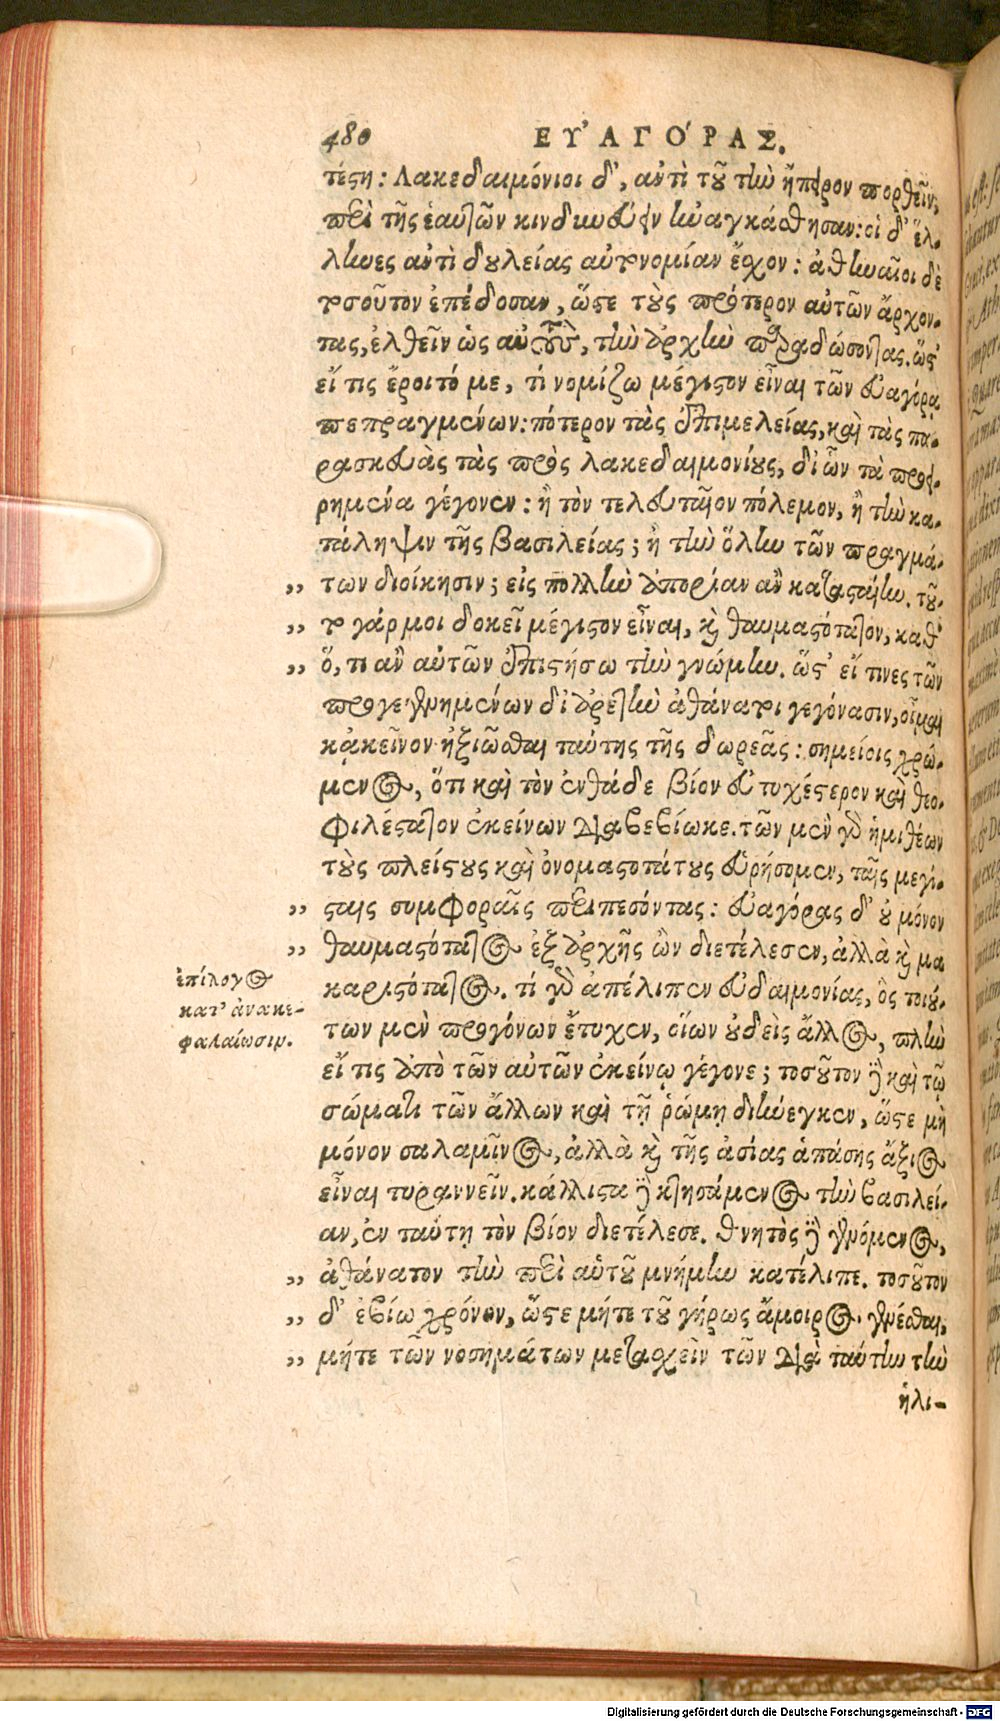 480 ΕΥ᾽ΑΓΟ´ΡΑΣ.
τέστη: Λακεδαιμόνιοι δ᾽, ἀντὶ τοῦ τὴν ἤπειρον πορθεῖν,
περὶ τῆς ἑαυτῶν κινδυνεύειν ἠναγκάσθησαν: οἱ δ᾽ ἕλ-
ληνες ἀντὶ δουλείας αὐτονομίαν ἔχον: ἀθηναῖοι δὲ
τοσοῦτον ἐπέδοσαν, ὥστε τοὺς πρότερον αὐτῶν ἄρχον-
τας, ἐλθεῖν ὡς αὐτοὺς, τὴν ἀρχὴν παραδώσοντας. ὥστ᾽
εἴ τις ἔροιτό με, τί νομίζω μέγιστον εἶναι τῶν εὐαγόρᾳ
πεπραγμένων: πότερον τὰς ἐπιμελείας, καὶ τὰς πα-
ρασκευὰς τὰς πρὸς λακεδαιμονίους, δι᾽ ὧν τὰ προει-
ρημένα γέγονεν: ἢ τὸν τελευταῖον πόλεμον, ἢ τὴν κα-
τάληψιν τῆς βασιλείας; ἢ τὴν ὅλην τῶν πραγμά-
,, των διοίκησιν; εἰς πολλὴν ἀπορίαν ἂν κατασταίην. τού-
,, το γάρ μοι δοκεῖ μέγιστον εἶναι, καὶ θαυμαστότατον, καθ᾽
,, ὅ,τι ἂν αὐτῶν ἐπιστήσω τὴν γνώμην. ὥστ᾽ εἴ τινες τῶν
προγεγενημένων δι᾽ ἀρετὴν ἀθάνατοι γεγόνασιν, οἶμαι
κἀκεῖνον ἠξιῶσθαι ταύτης τῆς δωρεᾶς: σημείοις χρώ-
μενος, ὅτι καὶ τὸν ἐνθάδε βίον εὐτυχέστερον καὶ θεο-
φιλέστατον ἐκείνων διαβεβίωκε. τῶν μὲν γὰρ ἡμιθέων
τοὺς πλείστους καὶ ὀνομαστοτάτους εὑρήσομεν, ταῖς μεγί-
,, σταις συμφοραῖς περιπεσόντας: εὐαγόρας δ᾽ οὐ μόνον
,, θαυμαστότατος ἐξ ἀρχῆς ὢν διετέλεσεν, ἀλλὰ καὶ μα
καριστότατος. τί γὰρ ἀπέλιπεν εὐδαιμονίας, ὃς τοιού-
των μὲν προγόνων ἔτυχεν, οἵων οὐδεὶς ἄλλος, πλὴν
εἴ τις ἀπὸ τῶν αὐτῶν ἐκείνῳ γέγονε; τοσοῦτον δὲ καὶ τῷ
σώματι τῶν ἄλλων καὶ τῇ ῥώμῃ διήνεγκεν, ὥστε μὴ
μόνον σαλαμῖνος, ἀλλὰ καὶ τῆς ἀσίας ἁπάσης ἄξιος
εἶναι τυραννεῖν. κάλλιστα δὲ κτησάμενος τὴν βασιλεί-
αν, ἐν ταύτῃ τὸν βίον διετέλεσε. θνητὸς δὲ γενόμενος,
,, ἀθάνατον τὴν περὶ αὑτοῦ μνήμην κατέλιπε. τοσοῦτον
,, δ᾽ ἐβίω χρόνον, ὥστε μήτε τοῦ γήρως ἄμοιρος γενέσθαι,
,, μήτε τῶν νοσημάτων μετασχεῖν τῶν διὰ ταύτην τὴν
ἡλι-
ἐπίλογος
κατ᾽ ἀνακε-
φαλαίωσιν.
Digitalisierung gefördert durch die Deutsche Forschungsgemeinschaft - DFG